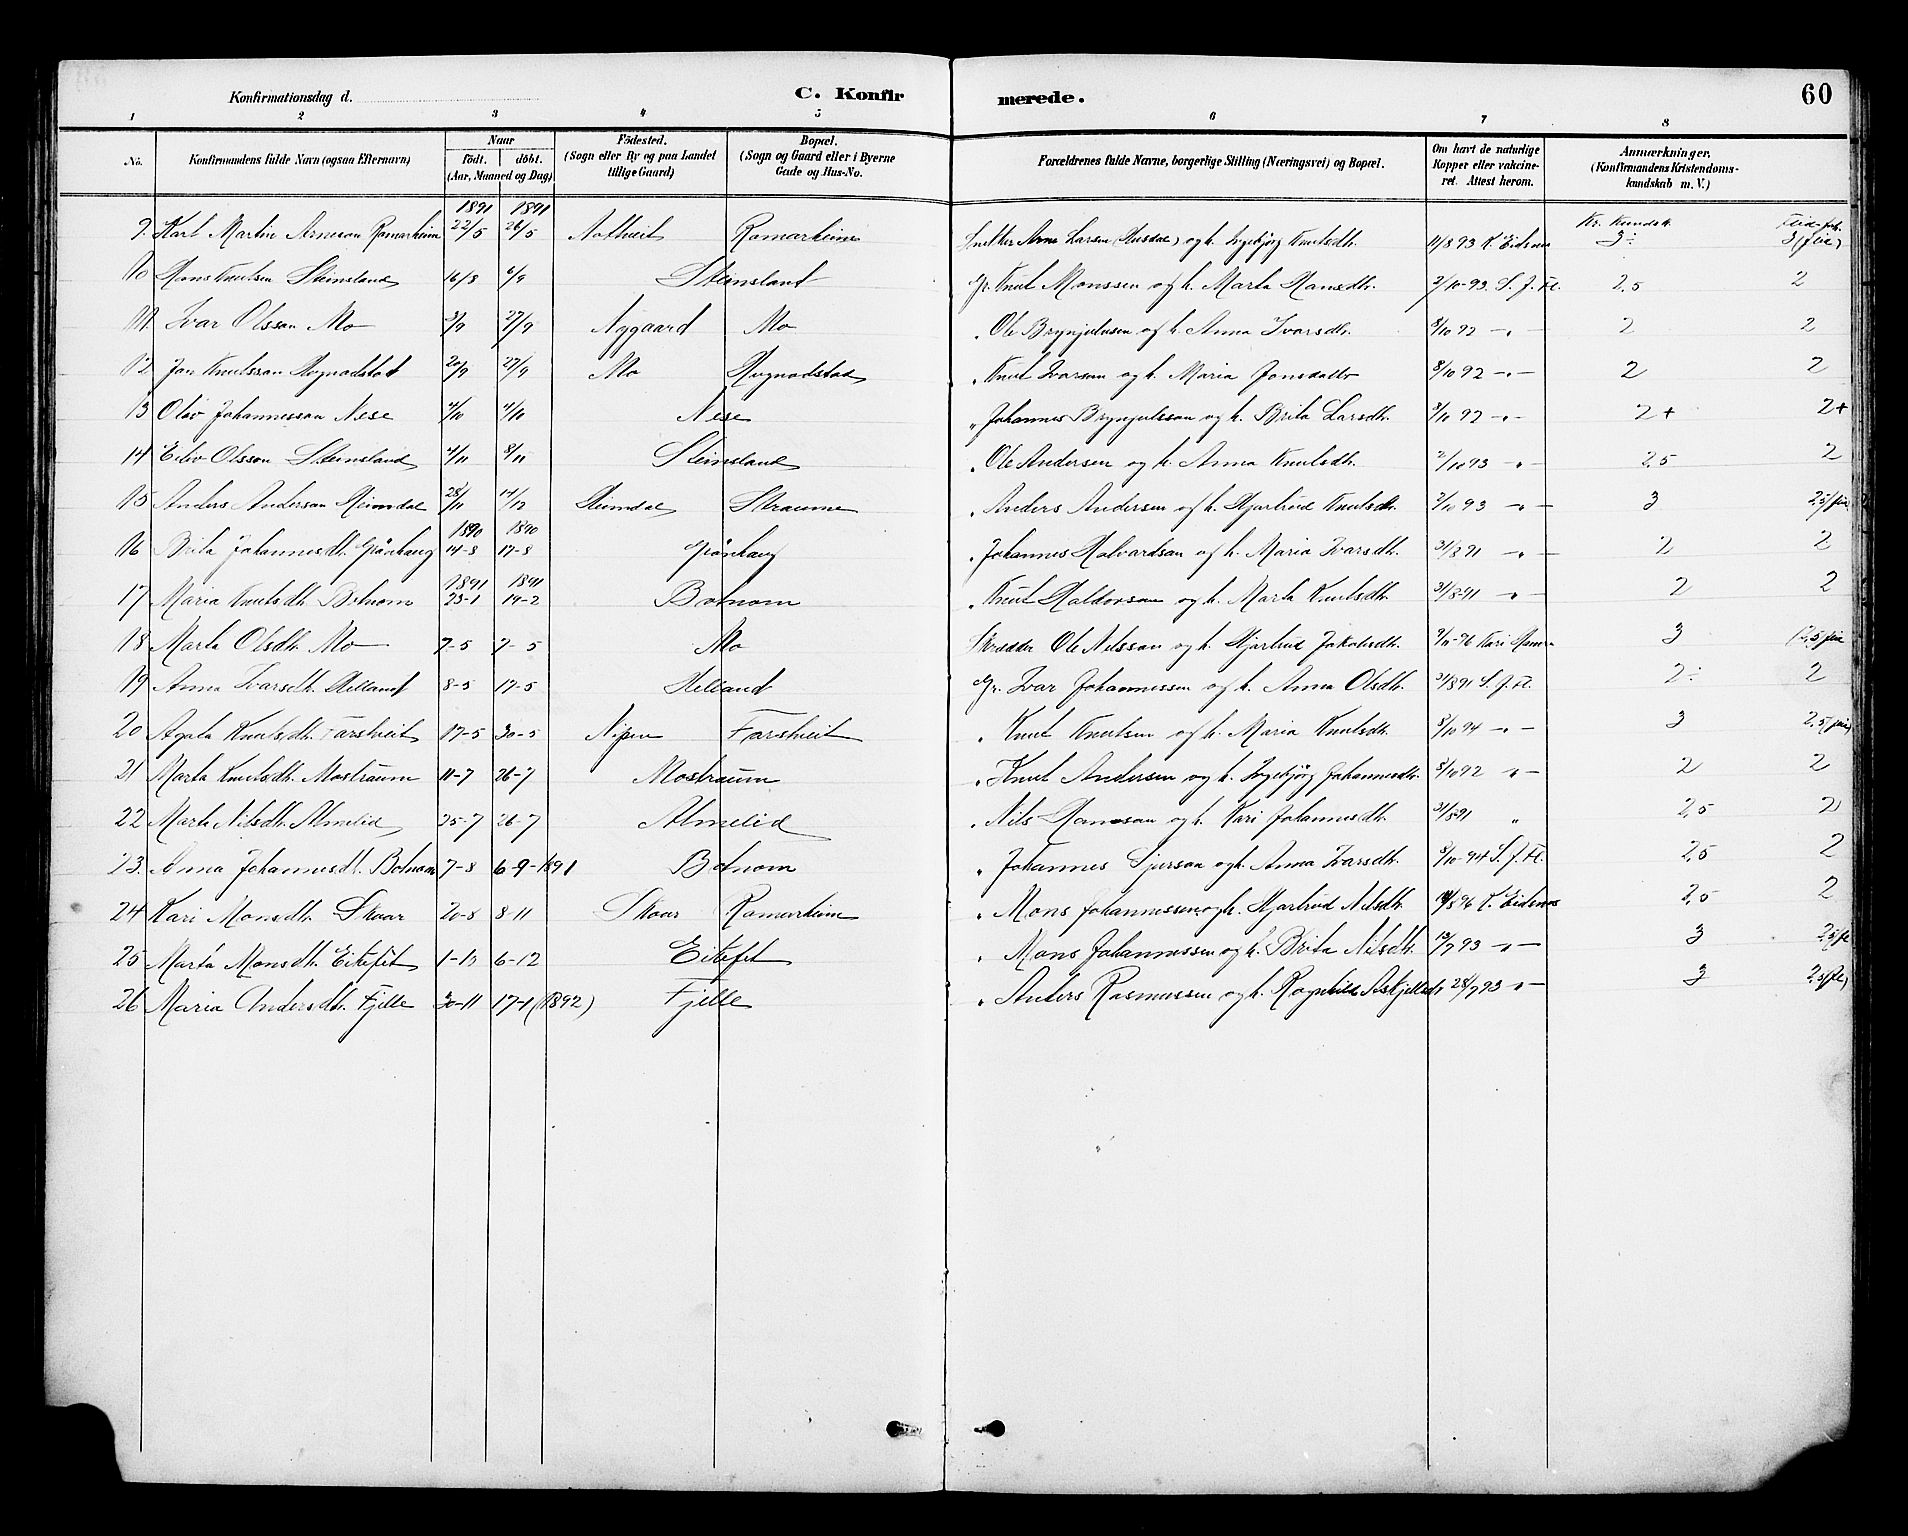 60
Konfirmationsdag d.
C. Konfirmerede.
1 2 3 4 5 6 7 8
No. Konfirmandens fulde Navn (ogsaa Efternavn) Naar födt. döbt. (Aar, Maaned og Dag) Födested. (Sogn eller By og paa Landet tillige Gaard) Bopæl. (Sogn og Gaard eller i Byerne Gade og Hus-No. Forældrenes fulde Navne, borgerlige Stilling (Næringsvei) og Bopæl. Om havt de naturlige Kopper eller vakcineret. Attest herom. Anmærkninger. (Konfirmandens Kristendomskundskab m. V.)
1891 1891 Kr. Kundsk.
9. Karl Martin Arneson Romarheim 22/5 26/5 Romarheim Snekker Arne Larsen (Husdal) og h. Ingebjörg Knutsdtr. 11/8 93 3÷ 3 (flid)
10 Mons Knutsen Steinsland 16/8 6/9 Steinsland Gr. Knut Monssen og h. Marta Hansdtr. 2/10-93 S. J. Fl. 2,5 2
11. Ivar Olsson Mo 3/9 27/9 Nygaard Mo " Ole Brynjulvsen og h. Anna Ivarsdtr. 8/10 92 -"- 2 2
12 Jon Knutsson Rognadstad 20/9 27/9 Mo Rognadstad " Knut Ivarsen og h. Maria Jonsdatter 8/10 92 -"- 2 2
13 Olav Johannesson Nese 4/10 Nese " Johannes Brynjulsson og h. Brita Larsdtr. 8/10 92 -"- 2+ 2+
14 Eiliv Olsson Steinsland 4/11 8/11 Steinsland " Ole Andersen og h. Anna Knutsdtr. 2/10 93 -"- 2,5 2
15 Anders Anderson Heimdal 28/11 14/12 Heimdal Straume " Anders Andersen og h. Hjartrud Knutsdtr. 2/10 93 -"- 3
1890 1890
16 Brita Johannesdtr. Grönhaug 14-8 17-8 Grönhaug " Johannes Halvardsen og h. Maria Ivarsdtr. 31/8 91 -"- 2 2
1891 1891
17 Maria Knutsdtr. Botnom 23-1 14-2 Botnom " Knut Haldorsen og h. Marta Knutsdtr. 31/8-91 -"- 2 2
18 Marta Olsdtr. Mo 7-5 7-5 Mo Skredder Ole Nilsson og h. Hjartrud Jakobsdtr. Kari 3
19 Anna Ivarsdtr. Helland 8-5 17-5 Helland Gr. Ivar Johannessen og h. Anna Olsdtr. 31/8 91 S. J. Fl. 2÷ 2
20 Agata Knutsdtr. Farstveit 17-5 30-5 Nipen Farstveit " Knut Knutsen og h. Maria Knutsdtr. 8/10 94 -"- 3
21 Marta Knutsdtr. Mostraum 11-7 26-7 Mostraum " Knut Andersen og h. Ingebjörg Johannesdtr. 8/10 92 -"- 2 2
22 Marta Nilsdtr. Almelid 25-7 26-7 Almelid " Nils Hansson og h. Kari Johannesdtr. 31/8-91 " 2,5 2
23. Anna Johannesdtr. Botnom 7-8 6-9-1891 Botnom " Johannes Sjursen og h. Anna Ivarsdtr. 8/10-94 S. J. Fl. 2,5 2
24 Kari Monsdtr. Skaar 20-8 8-11 Skaar Romarheim " Mons Johannessen og h. Hjartrud Nilsdtr. K. Eidsnes 2,5 2
25 Marta Monsdtr. Eitefet 1-10 6-12 Eitefet " Mons Johannessen og h. Brita Nilsdtr. 13/7 93 -"- 3
26 Maria Andersdtr. Fjelle 30-11 17-1 (1892) Fjelle " Anders Rasmussen og h. Rognhild Askjellsdtr 28/7 93 -"- 3